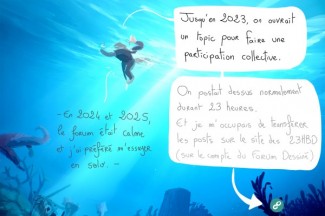 Jusqu'en 2023, on ouvrait
un topic pour faire une
participation collective.
On postait dessus normalement
durant 23 heures.
Et je m'occupais de transférer
les posts sur le site des 23HBD
(sur le compte du Forum Dessiné)
-En 2024 et 2025,
le forum était calme
et j'ai préféré m'essayer
en solo. -